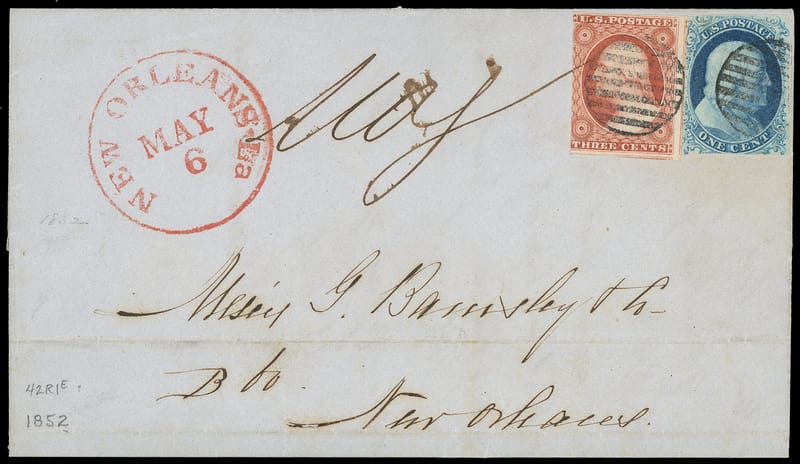 U.S. POSTAGE
THREE CENTS
U.S. POSTAGE
ONE CENT
NEW ORLEANS-La
MAY
6
Way
1852
Messrs G. Barnsley & Co
New Orleans.
42R1E
1852